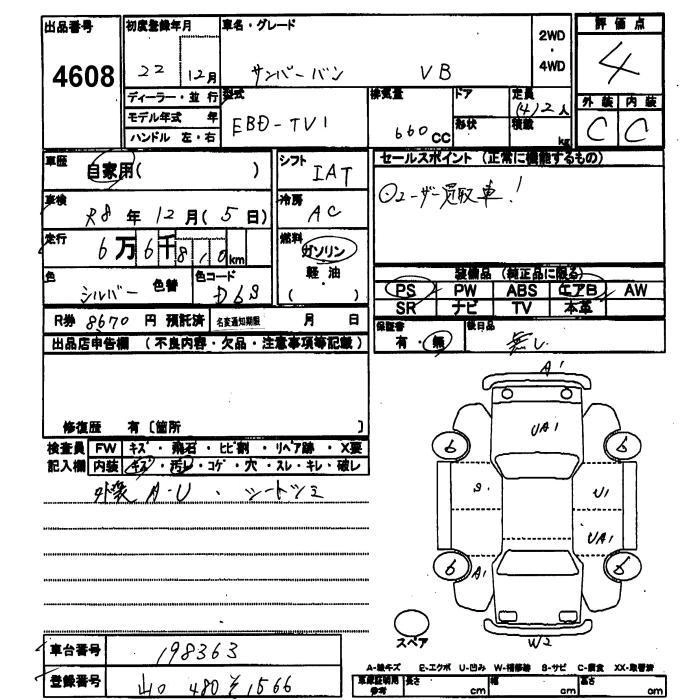 出品番号 4608
初度登録年月 22 12月
車名・グレード サンバーバン VB
2WD・4WD
評価点 4
外装 C 内装 C
ディーラー・並行
モデル年式 年
ハンドル 左・右
型式 EBD-TV1
排気量 660cc
ドア 形状
定員 (4)2人
積載 kg
車歴 自家用( )
シフト IAT
セールスポイント (正常に機能するもの)
ユーザー買取車!
車検 R8年12月(5日)
冷房 AC
走行 6万6千810km
燃料 ガソリン 軽・油 ( )
色 シルバー 色替 色コード D6S
装備品 (純正品に限る)
PS PW ABS エアB AW
SR ナビ TV 本革
R券 8670円 預託済 名変通知期限 月 日
保証書 有・無 後日品 無し
出品店申告欄 (不良内容・欠品・注意事項等記載)
修復歴 有〔箇所 〕
検査員記入欄
FW キズ・飛石・ヒビ割・リペア跡・X要
内装 キズ・汚レ・コゲ・穴・スレ・キレ・破レ
外装 A・U ・ シートシミ
A1
UA1
6 6
S1 U1
UA1
6 A1 6
スペア
W2
車台番号 198363
登録番号 山口 480 そ 1566
A-線キズ E-エクボ U-凹み W-補修跡 S-サビ C-腐食 XX-取替済
車庫証明用参考 長さ cm 幅 cm 高さ cm